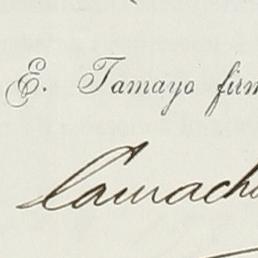 E. Tamayo firm
Camacho